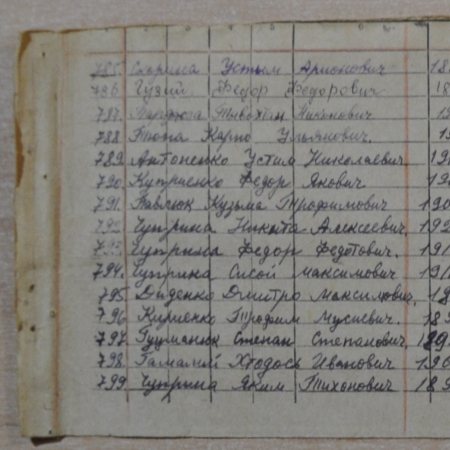 785. Скрипка Устым Арионович 18
786 Гузий Федор Федорович 18
787. Никонович 19
788 Карпо Ульянович. 1
789. Антоненко Устим Николаевич 19
790. Куприенко Федор Янович 19
791. Павлюк Кузьма Трофимович 190
792 Чуприна Никита Алексеевич. 192
793. Чуприна Федор Федотович. 191
794. Чуприна Сисой Максимович 191
795. Диденко Дмитро Максимович, 18
796. Кириенко Трофим Мусиевич. 189
797. Гуцманюк Степан Степанович, 189
798. Гамалий Ходось Иванович 190
799 Чуприна Яким Тихонович 189